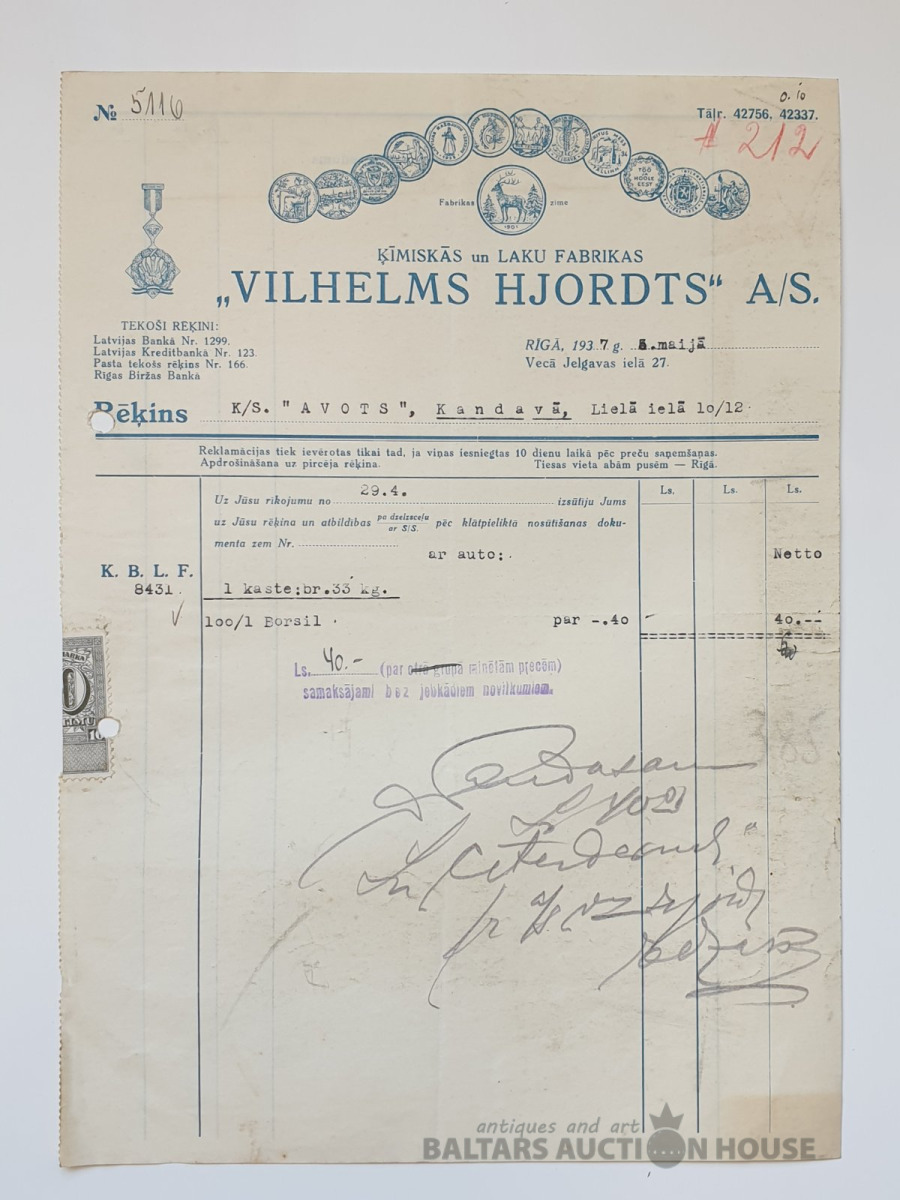 № 5116
Tāļr. 42756, 42337.
# 212
Fabrikas zime
1901
ĶĪMISKĀS un LAKU FABRIKAS
„VILHELMS HJORDTS“ A/S.
TEKOŠI RĒĶINI:
Latvijas Bankā Nr. 1299.
Latvijas Kreditbankā Nr. 123.
Pasta tekošs rēķins Nr. 166.
Rīgas Biržas Bankā
RĪGĀ, 1937 g. 5.maijā
Vecā Jelgavas ielā 27.
Rēķins K/S. "AVOTS", Kandavā, Lielā ielā 10/12
Reklamācijas tiek ievērotas tikai tad, ja viņas iesniegtas 10 dienu laikā pēc preču saņemšanas.
Apdrošināšana uz pircēja rēķina. Tiesas vieta abām pusēm — Rīgā.
Ls. Ls. Ls.
Uz Jūsu rīkojumu no 29.4. izsūtīju Jums
uz Jūsu rēķina un atbildības pa dzelzsceļu
ar S/S. pēc klātpieliktā nosūtīšanas doku-
menta zem Nr.
ar auto: Netto
K. B. L. F.
8431 1 kaste:br.33 kg.
100/1 Borsil par -.40 40.--
Ls. 40.- (par otrā grupā minētām precēm)
samaksājami bez jebkādiem novilkumiem.
385
antiques and art
BALTARS AUCTION HOUSE